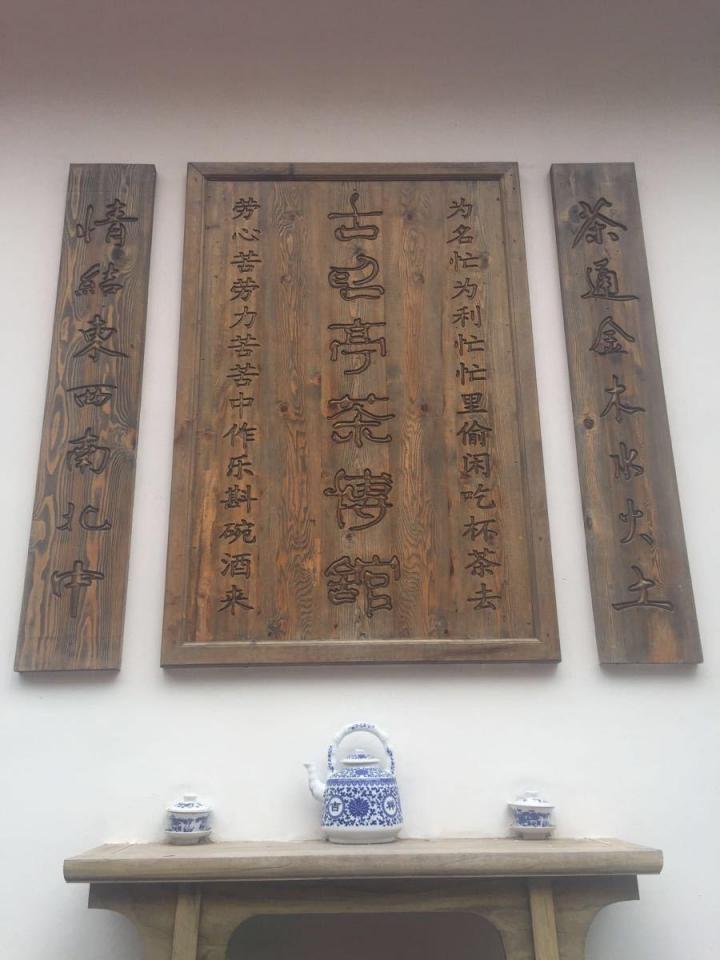 茶通金木水火土
为名忙为利忙忙里偷闲吃杯茶去
古邑亭茶博舘
劳心苦劳力苦苦中作乐斟碗酒来
情结東西南北中
吉祥